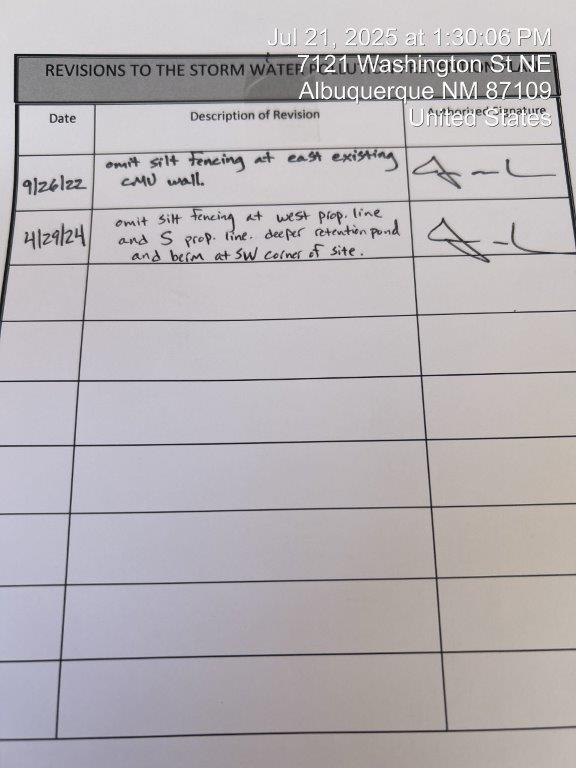 Jul 21, 2025 at 1:30:06 PM
7121 Washington St NE
Albuquerque NM 87109
United States
REVISIONS TO THE STORM WATER POLLUTION PREVENTION PLAN
Date Description of Revision Authorized Signature
9/26/22 omit silt fencing at east existing
CMU wall.
4/29/24 omit silt fencing at west prop. line
and S prop. line. deeper retention pond
and berm at SW corner of site.